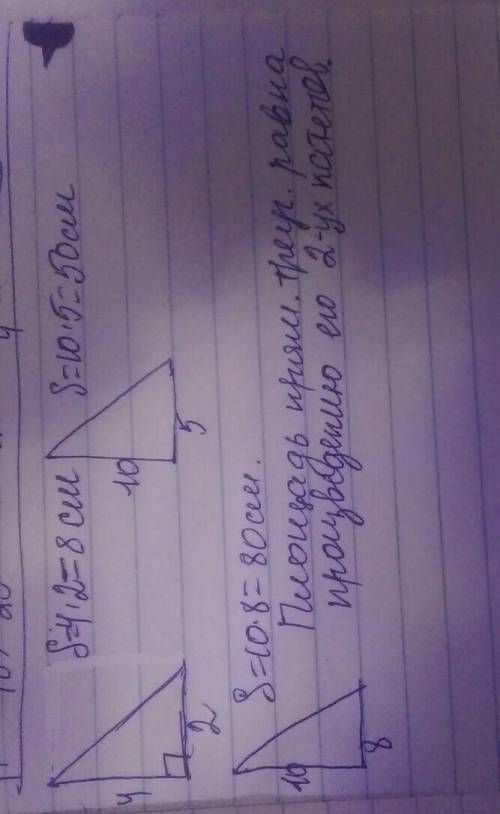 S=4·2=8 см
4
2
S=10·5=50см
10
5
S=10·8=80см.
10
8
Площадь прям. треуг. равна
произведению его 2-ух катетов.